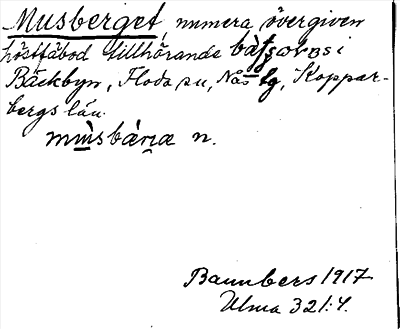 Musberget, numera övergiven
höstfäbod tillhörande
Bäckbyn, Floda sn, Nås tg, Koppar-
bergs län.
mùsbærjæ n.
Bannbers 1917
Ulma 321:4.